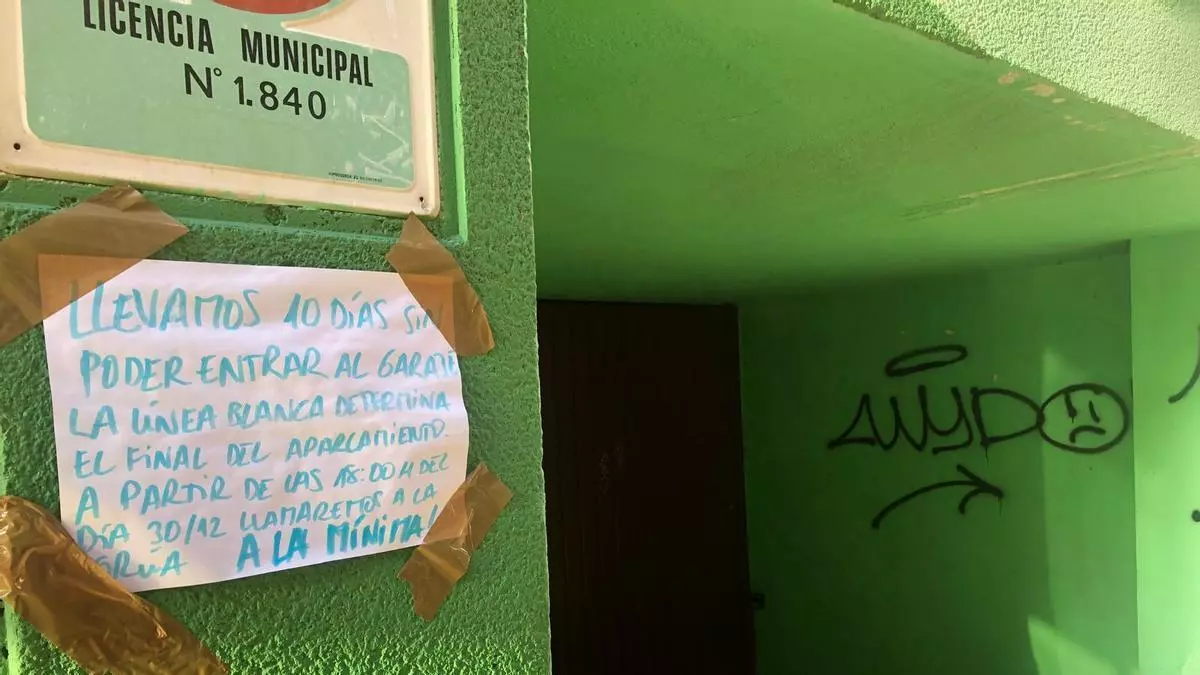 LICENCIA MUNICIPAL
N° 1.840
LLEVAMOS 10 DÍAS SIN
PODER ENTRAR AL GARAJE
LA LÍNEA BLANCA DETERMINA
EL FINAL DEL APARCAMIENTO.
A PARTIR DE LAS 18:00 H DEL
DÍA 30/12 LLAMAREMOS A LA
GRÚA A LA MÍNIMA!